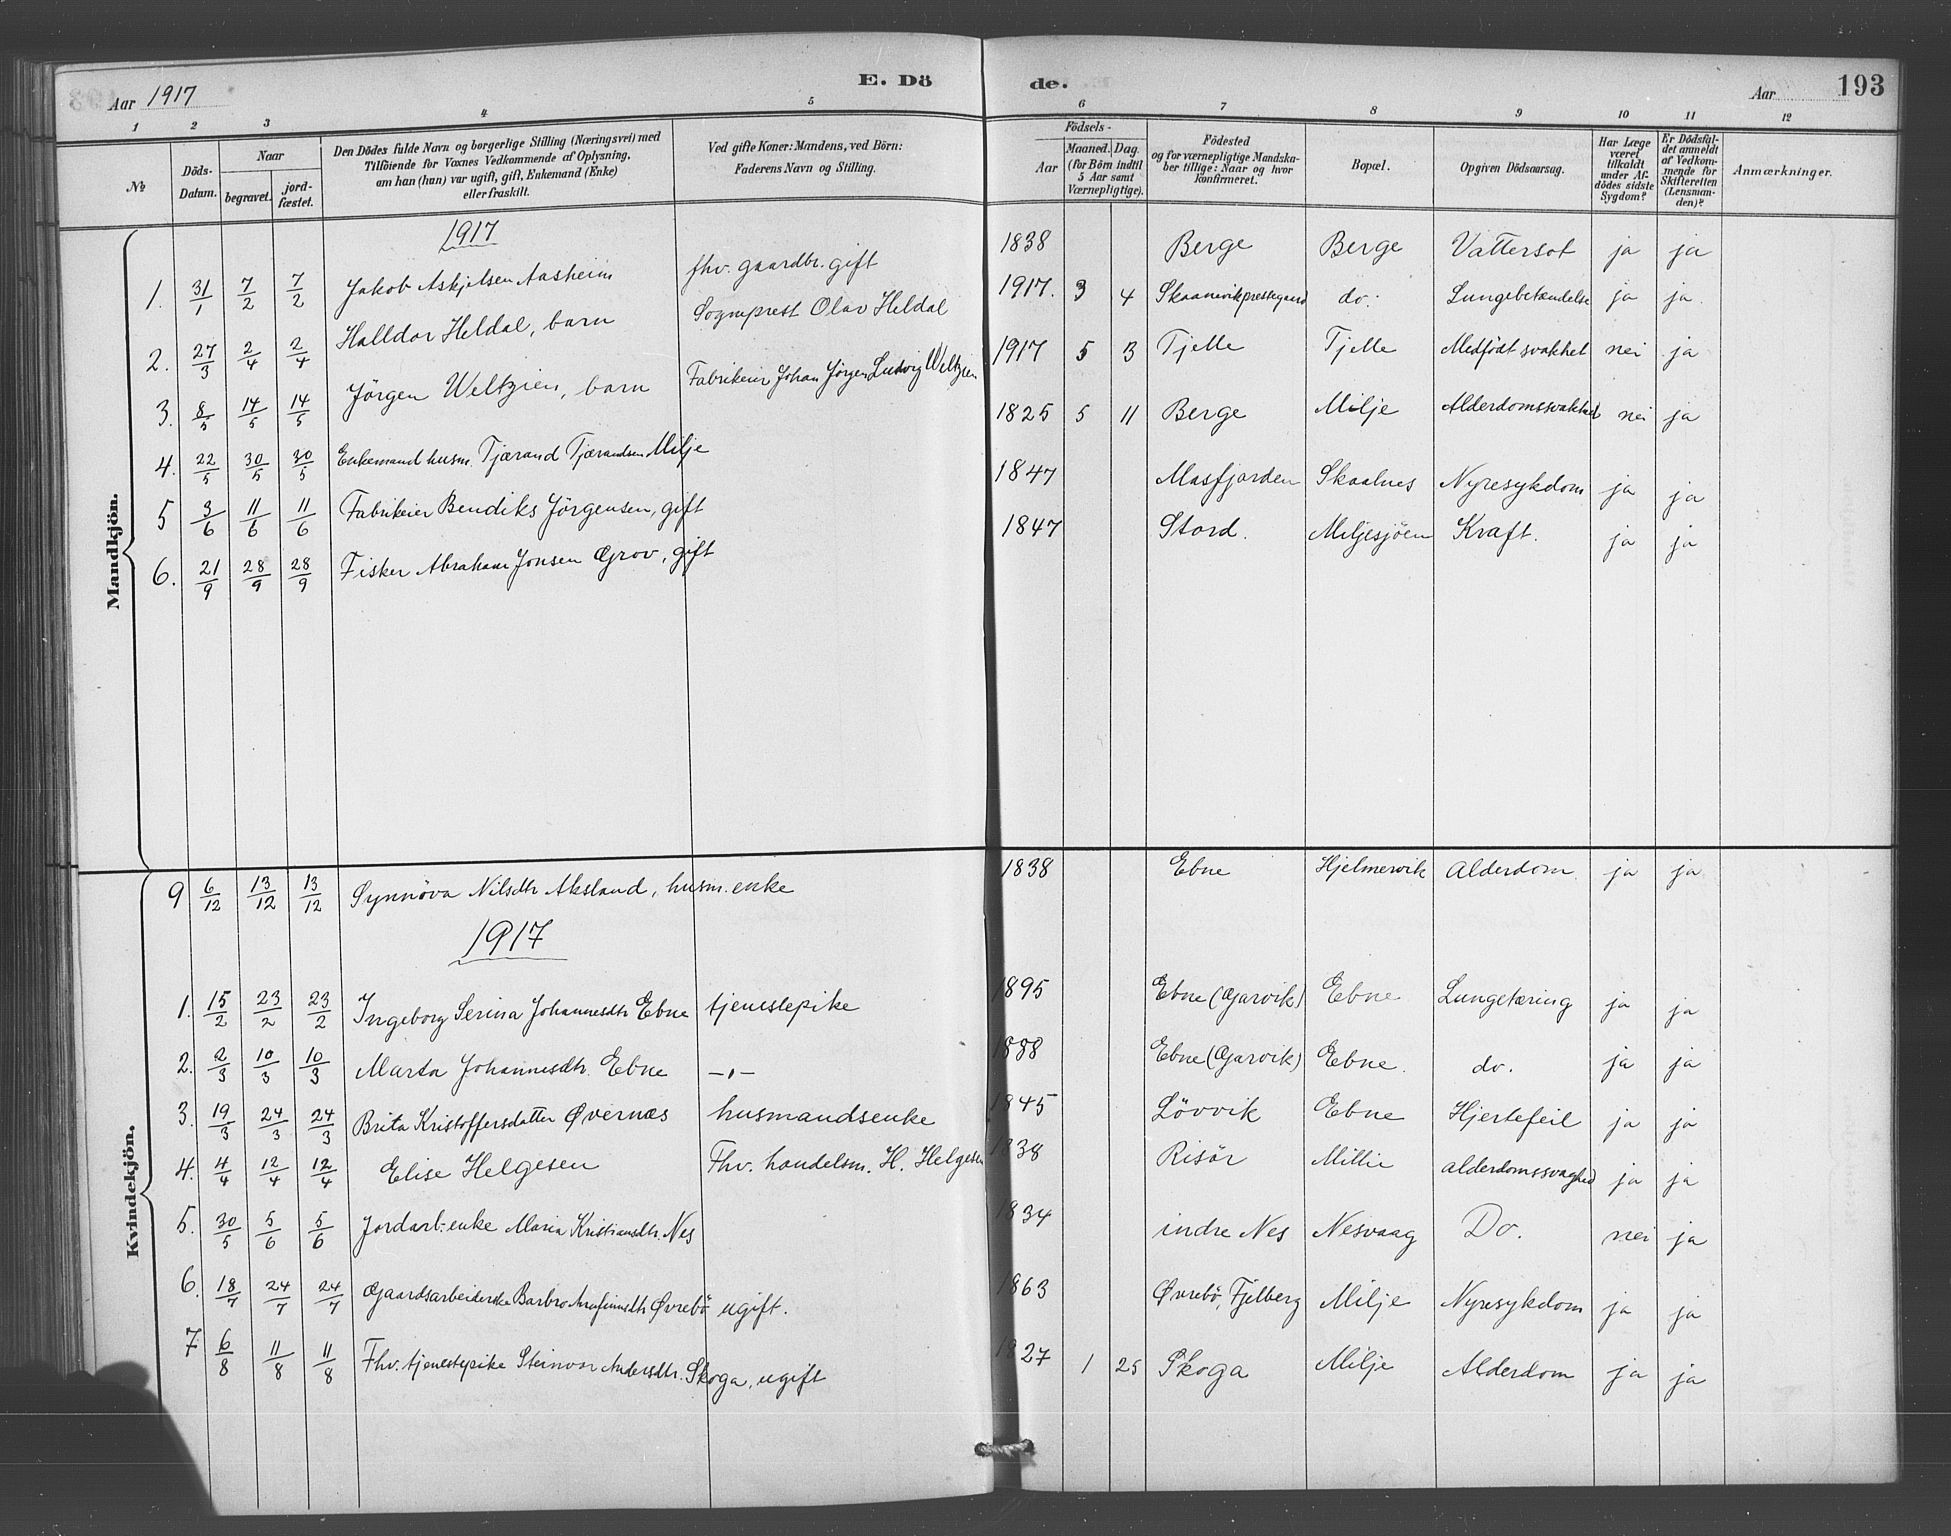 Aar 1917 E. Döde. Aar 193
1 2 3 4 5 6 7 8 9 10 11 12
№ Döds-Datum. Naar begravet. jord-fæstet. Den Dödes fulde Navn og borgerlige Stilling (Næringsvei) med Tilföiende for Voxnes Vedkommende af Oplysning, om han (hun) var ugift, gift, Enkemand (Enke) eller fraskilt. Ved gifte Koner: Mandens, ved Börn: Faderens Navn og Stilling. Födsels- Aar Maaned. Dag. (for Börn indtil 5 Aar samt Værnepligtige). Födested og for værnepligtige Mandskaber tillige: Naar og hvor konfirmeret. Bopæl. Opgiven Dödsaarsag. Har Læge været tilkaldt under Afdödes sidste Sygdom? Er Dödsfaldet anmeldt af Vedkommende for Skifteretten (Lensmanden)? Anmærkninger.
Mandkjön.
1917
1. 31/1 7/2 7/2 Jakob Askjelsen Aasheim fhv. gaardbr. gift 1838 Berge Berge Vattersot ja ja
2. 27/3 2/4 2/4 Halldor Heldal, barn Sogneprest Olav Heldal 1917. 3 4 Skaanevikprestegaard do. Lungebetændelse ja ja.
3. 8/5 14/5 14/5 Jörgen Weltzien, barn Fabrikeier Johan Jörgen Ludvig Weltzien 1917 5 3 Tjelle Tjelle Medfödt svakhet nei ja
4. 22/5 30/5 30/5 Enkemand husm. Tjærand Tjærandsen Milje 1825 5 11 Berge Milje Alderdomssvakhed nei ja
5 3/6 11/6 11/6 Fabrikeier Bendiks Jörgensen, gift 1847 Masfjorden Skaalnes Nyresykdom ja ja
6. 21/9 28/9 28/9 Fisker Abraham Jonsen Grov, gift 1847 Stord. Miljesjöen Kræft. ja ja
Kvindekjön.
9 6/12 13/12 13/12 Synnöva Nilsdtr Aksland, husm. enke 1838 Ebne Hjelmervik Alderdom. ja ja
1917
1. 15/2 23/2 23/2 Ingeborg Serina Johannesdtr Ebne tjenestepike 1895 Ebne (Garvik) Ebne Lungetæring ja ja
2. 2/3 10/3 10/3 Marta Johannesdtr. Ebne —„— 1888 Ebne (Garvik) Ebne. do. ja ja
3. 19/3 24/3 24/3 Brita Kristoffersdatter Øvernæs husmandsenke 1845 Lövvik Ebne Hjertefeil ja ja
4. 4/4 12/4 12/4 Elise Helgesen Fhv. handelsm. H. Helgesen 1838 Risör Millie alderdomssvaghed ja ja
5. 30/5 5/6 5/6 Jordarb. enke Maria Kristiansdtr. Nes 1834 indre Nes Nesvaag Do. nei ja
6. 18/7 24/7 24/7 Gaardsarbeiderske Barbro Arnfinnsdtr Øvrebö ugift. 1863 Øvrebö, Fjelberg Milje Nyresykdom ja ja
7 6/8 11/8 11/8 Fhv. tjenestepike Steinvor Andersdtr. Skoga, ugift 1827 1 25 Skoga Milje Alderdom ja ja